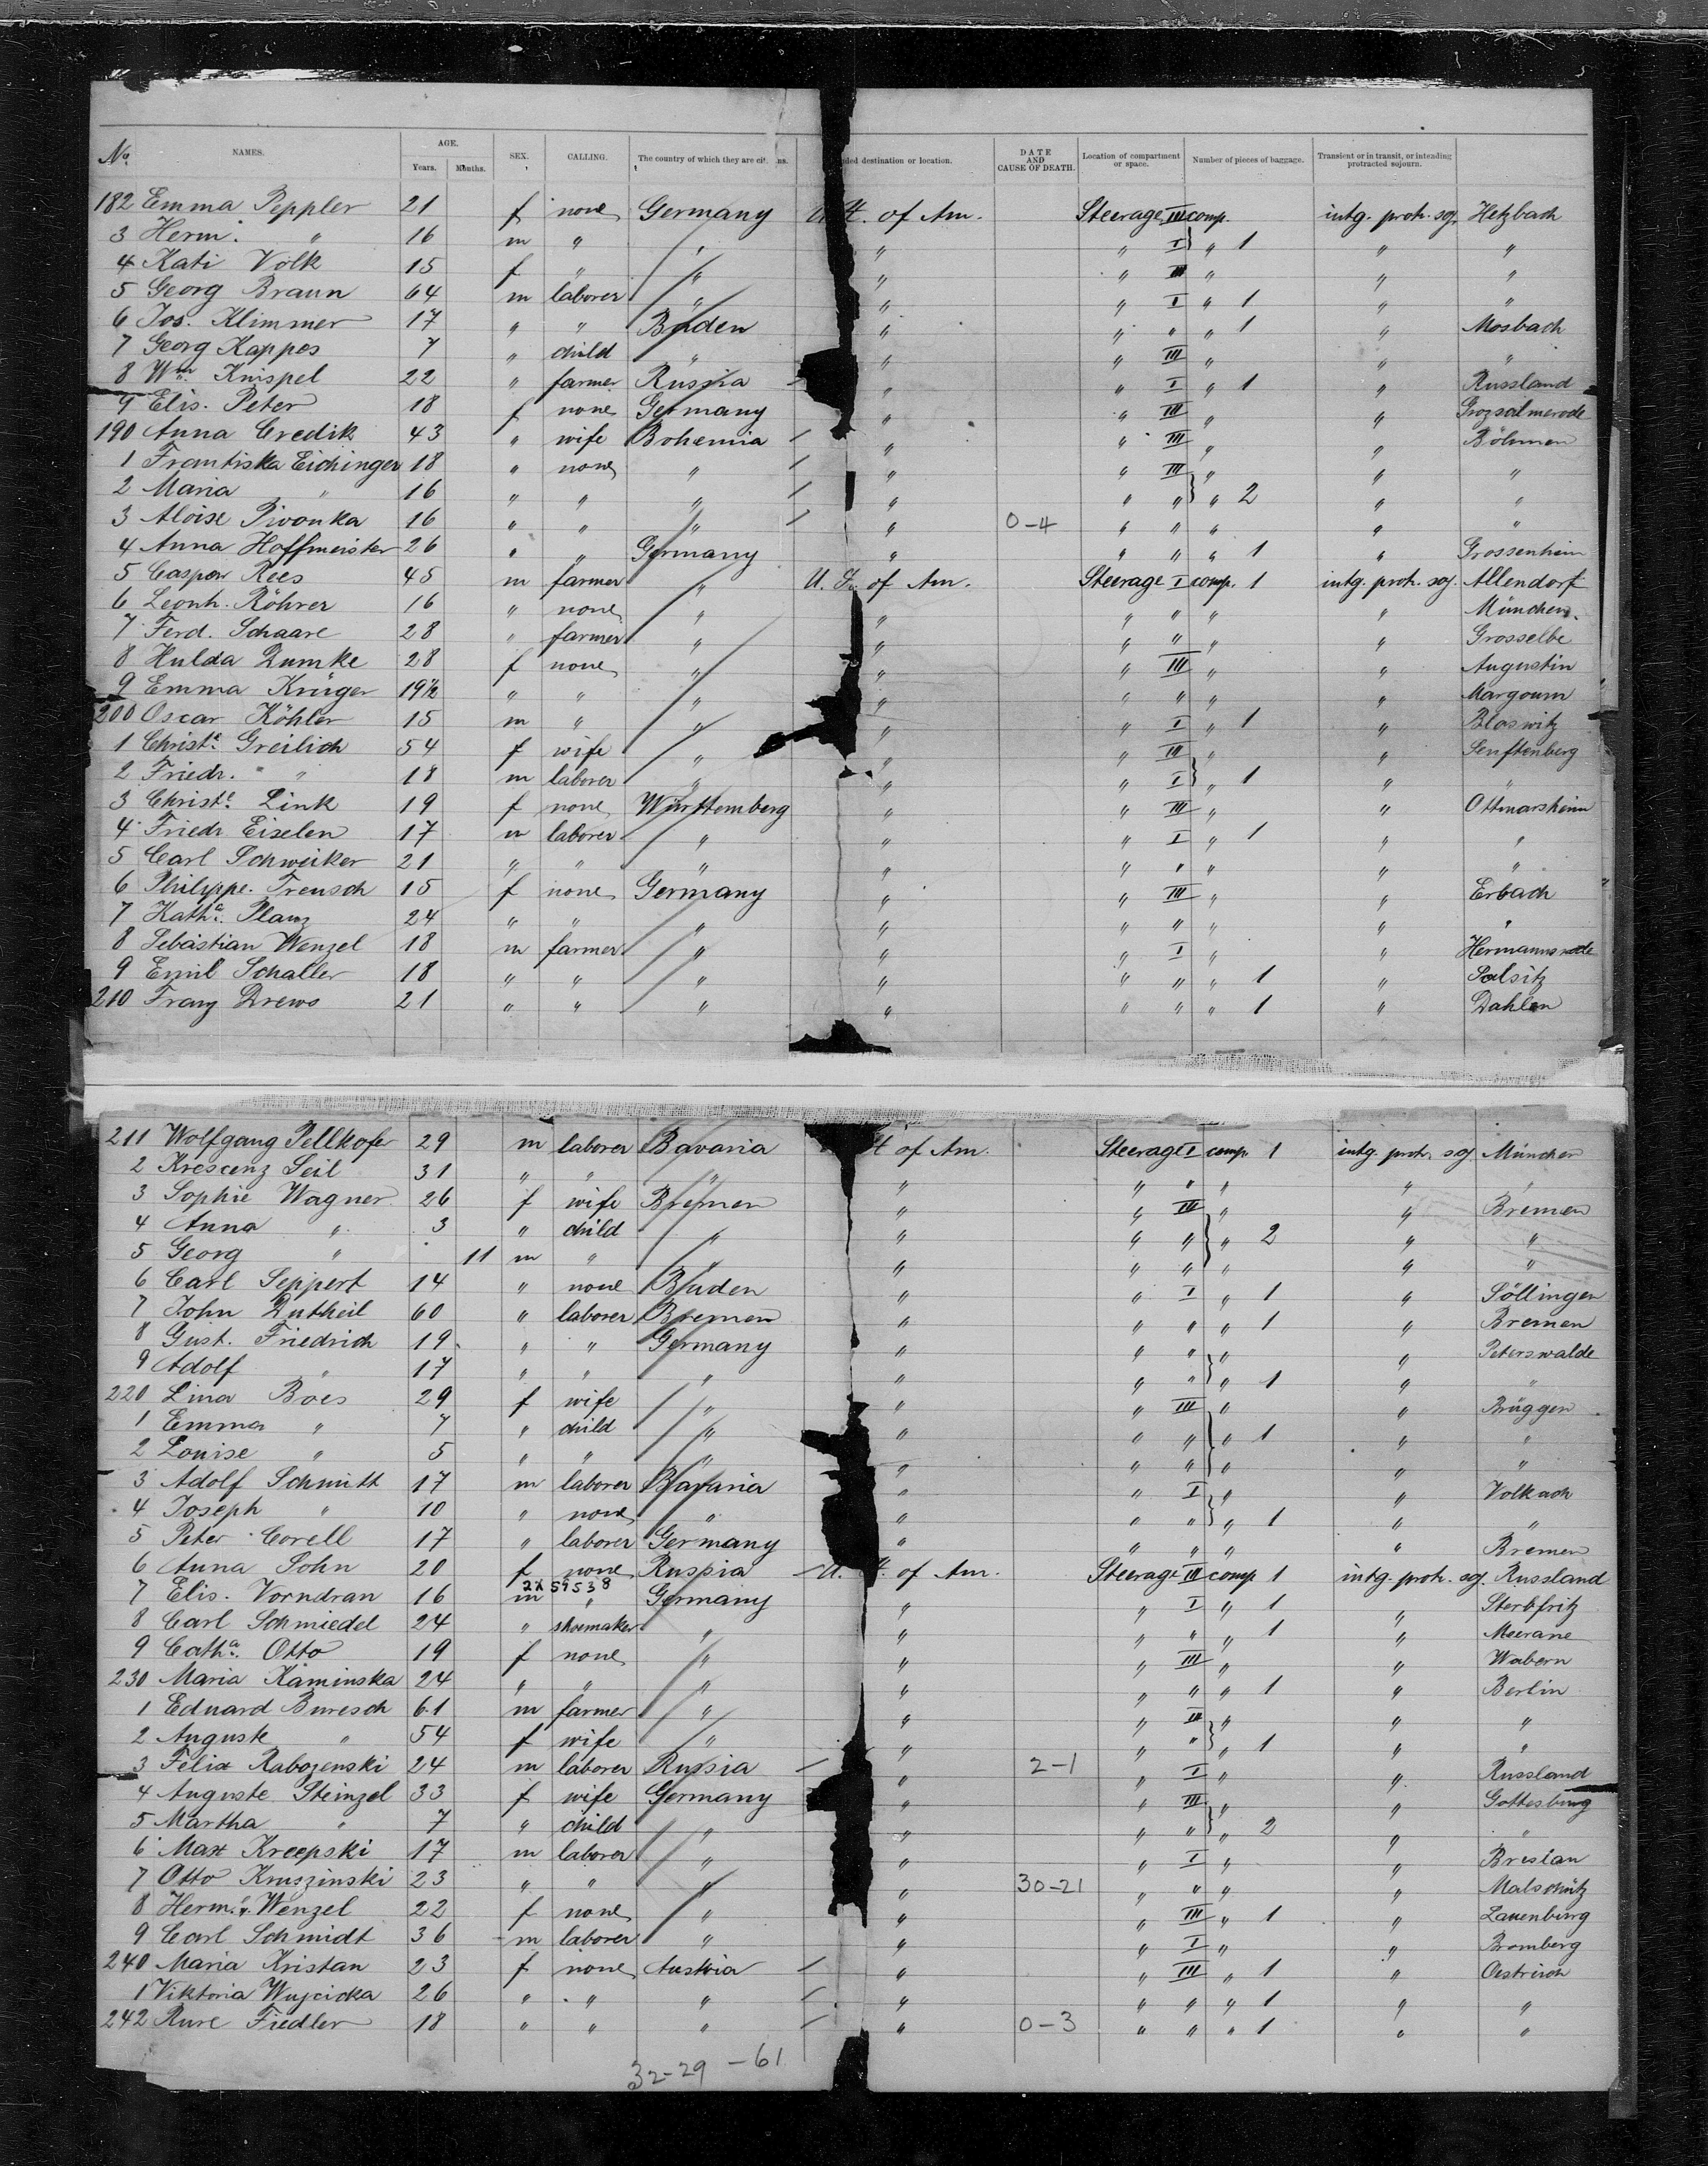 No. NAMES. AGE. Years. Months. SEX. CALLING. The country of which they are cit. ns. ded destination or location. DATE AND CAUSE OF DEATH. Location of compartment or space. Number of pieces of baggage. Transient or in transit, or intending protracted sojourn.
182 Emma Peppler 21 f none Germany U. St. of Am. Steerage III comp. intg. protr. soj. Hetzbach
3 Herm. " 16 m " " " " I " 1 " "
4 Kati Volk 15 f " " " " III " " "
5 Georg Braun 64 m laborer " " " I " 1 " "
6 Jos. Klimmer 17 " " Baden " " " " 1 " Mosbach
7 Georg Kappes 7 " child " " " III " " "
8 Wm. Knispel 22 " farmer Russia " " I " 1 " Russland
9 Elis. Peter 18 f none Germany " " III " " Grozsalmerode
190 Anna Credik 43 " wife Bohemia " " III " " Böhmen
1 Frantiska Eichinger 18 " none " " " III " " "
2 Maria " 16 " " " " " " " 2 " "
3 Aloise Pivonka 16 " " " " 0-4 " " " " "
4 Anna Hoffmeister 26 " " Germany " " " " 1 " Grossenhein
5 Caspar Rees 45 m farmer " U. St. of Am. Steerage I comp. 1 intg. protr. soj. Allendorf
6 Leonh. Röhrer 16 " none " " " " " " München
7 Ferd. Schaare 28 " farmer " " " " " " Grosselbe
8 Hulda Dumke 28 f none " " " III " " Augustin
9 Emma Krüger 19½ " " " " " " " " Margoum
200 Oscar Köhler 15 m " " " " I " 1 " Bloswitz
1 Christe. Greilich 54 f wife " " " III " " Senftenberg
2 Friedr. " 18 m laborer " " " I " 1 " "
3 Christe. Link 19 f none Württemberg " " III " " Ottmarsheim
4 Friedr Eiselen 17 m laborer " " " I " 1 " "
5 Carl Schweiker 21 " " " " " " " " "
6 Philippe. Treusch 15 f none Germany " " III " " Erbach
7 Katha. Planz 24 " " " " " " " " "
8 Sebastian Wenzel 18 m farmer " " " I " " Hermannsrode
9 Emil Schaller 18 " " " " " " " 1 " Salsitz
210 Franz Drews 21 " " " " " " " 1 " Dahlen
211 Wolfgang Pellkofer 29 m laborer Bavaria St of Am. Steerage I comp 1 intg. protr. soj München
2 Krescenz Seil 31 " " " " " " " " "
3 Sophie Wagner 26 f wife Bremen " " III " " Bremen
4 Anna " 3 " child " " " " " 2 " "
5 Georg " 11 m " " " " " " " "
6 Carl Seppert 14 " none Baden " " I " 1 " Söllingen
7 John Dutheil 60 " laborer Bremen " " " " 1 " Bremen
8 Gust. Friedrich 19 " " Germany " " " " " Peterswalde
9 Adolf " 17 " " " " " " " 1 " "
220 Lina Boes 29 f wife " " " III " " Brüggen
1 Emma " 7 " child " " " " " 1 " "
2 Louise " 5 " " " " " " " " "
3 Adolf Schmitt 17 m laborer Bavaria " " I " " Volkach
4 Joseph " 10 " none " " " " " 1 " "
5 Peter Corell 17 " laborer Germany " " " " " Bremen
6 Anna Sohn 20 f none Russia U. St. of Am. Steerage III comp 1 intg. protr. soj. Russland
2X59538
7 Elis. Vorndran 16 m " Germany " " I " 1 " Sterbfritz
8 Carl Schmiedel 24 " shoemaker " " " " " 1 " Meerane
9 Catha. Otto 19 f none " " " III " " Wabern
230 Maria Kaminska 24 " " " " " " " 1 " Berlin
1 Eduard Buresch 61 m farmer " " " II " " "
2 Auguste " 54 f wife " " " " " 1 " "
3 Felix Rabozenski 24 m laborer Russia " 2-1 " I " " Russland
4 Auguste Steinzel 33 f wife Germany " " III " " Gottesburg
5 Martha " 7 " child " " " " " 2 " "
6 Max Kreepski 17 m laborer " " " I " " Breslau
7 Otto Kruszinski 23 " " " " 30-21 " " " " Malschütz
8 Herm. Wenzel 22 f none " " " III " 1 " Lauenburg
9 Carl Schmidt 36 m laborer " " " I " " Bromberg
240 Maria Kristan 23 f none Austria " " III " 1 " Oestrich
1 Viktoria Wujcicka 26 " " " " " " " 1 " "
242 Rure Fiedler 18 " " " " 0-3 " " " 1 " "
32-29 -61